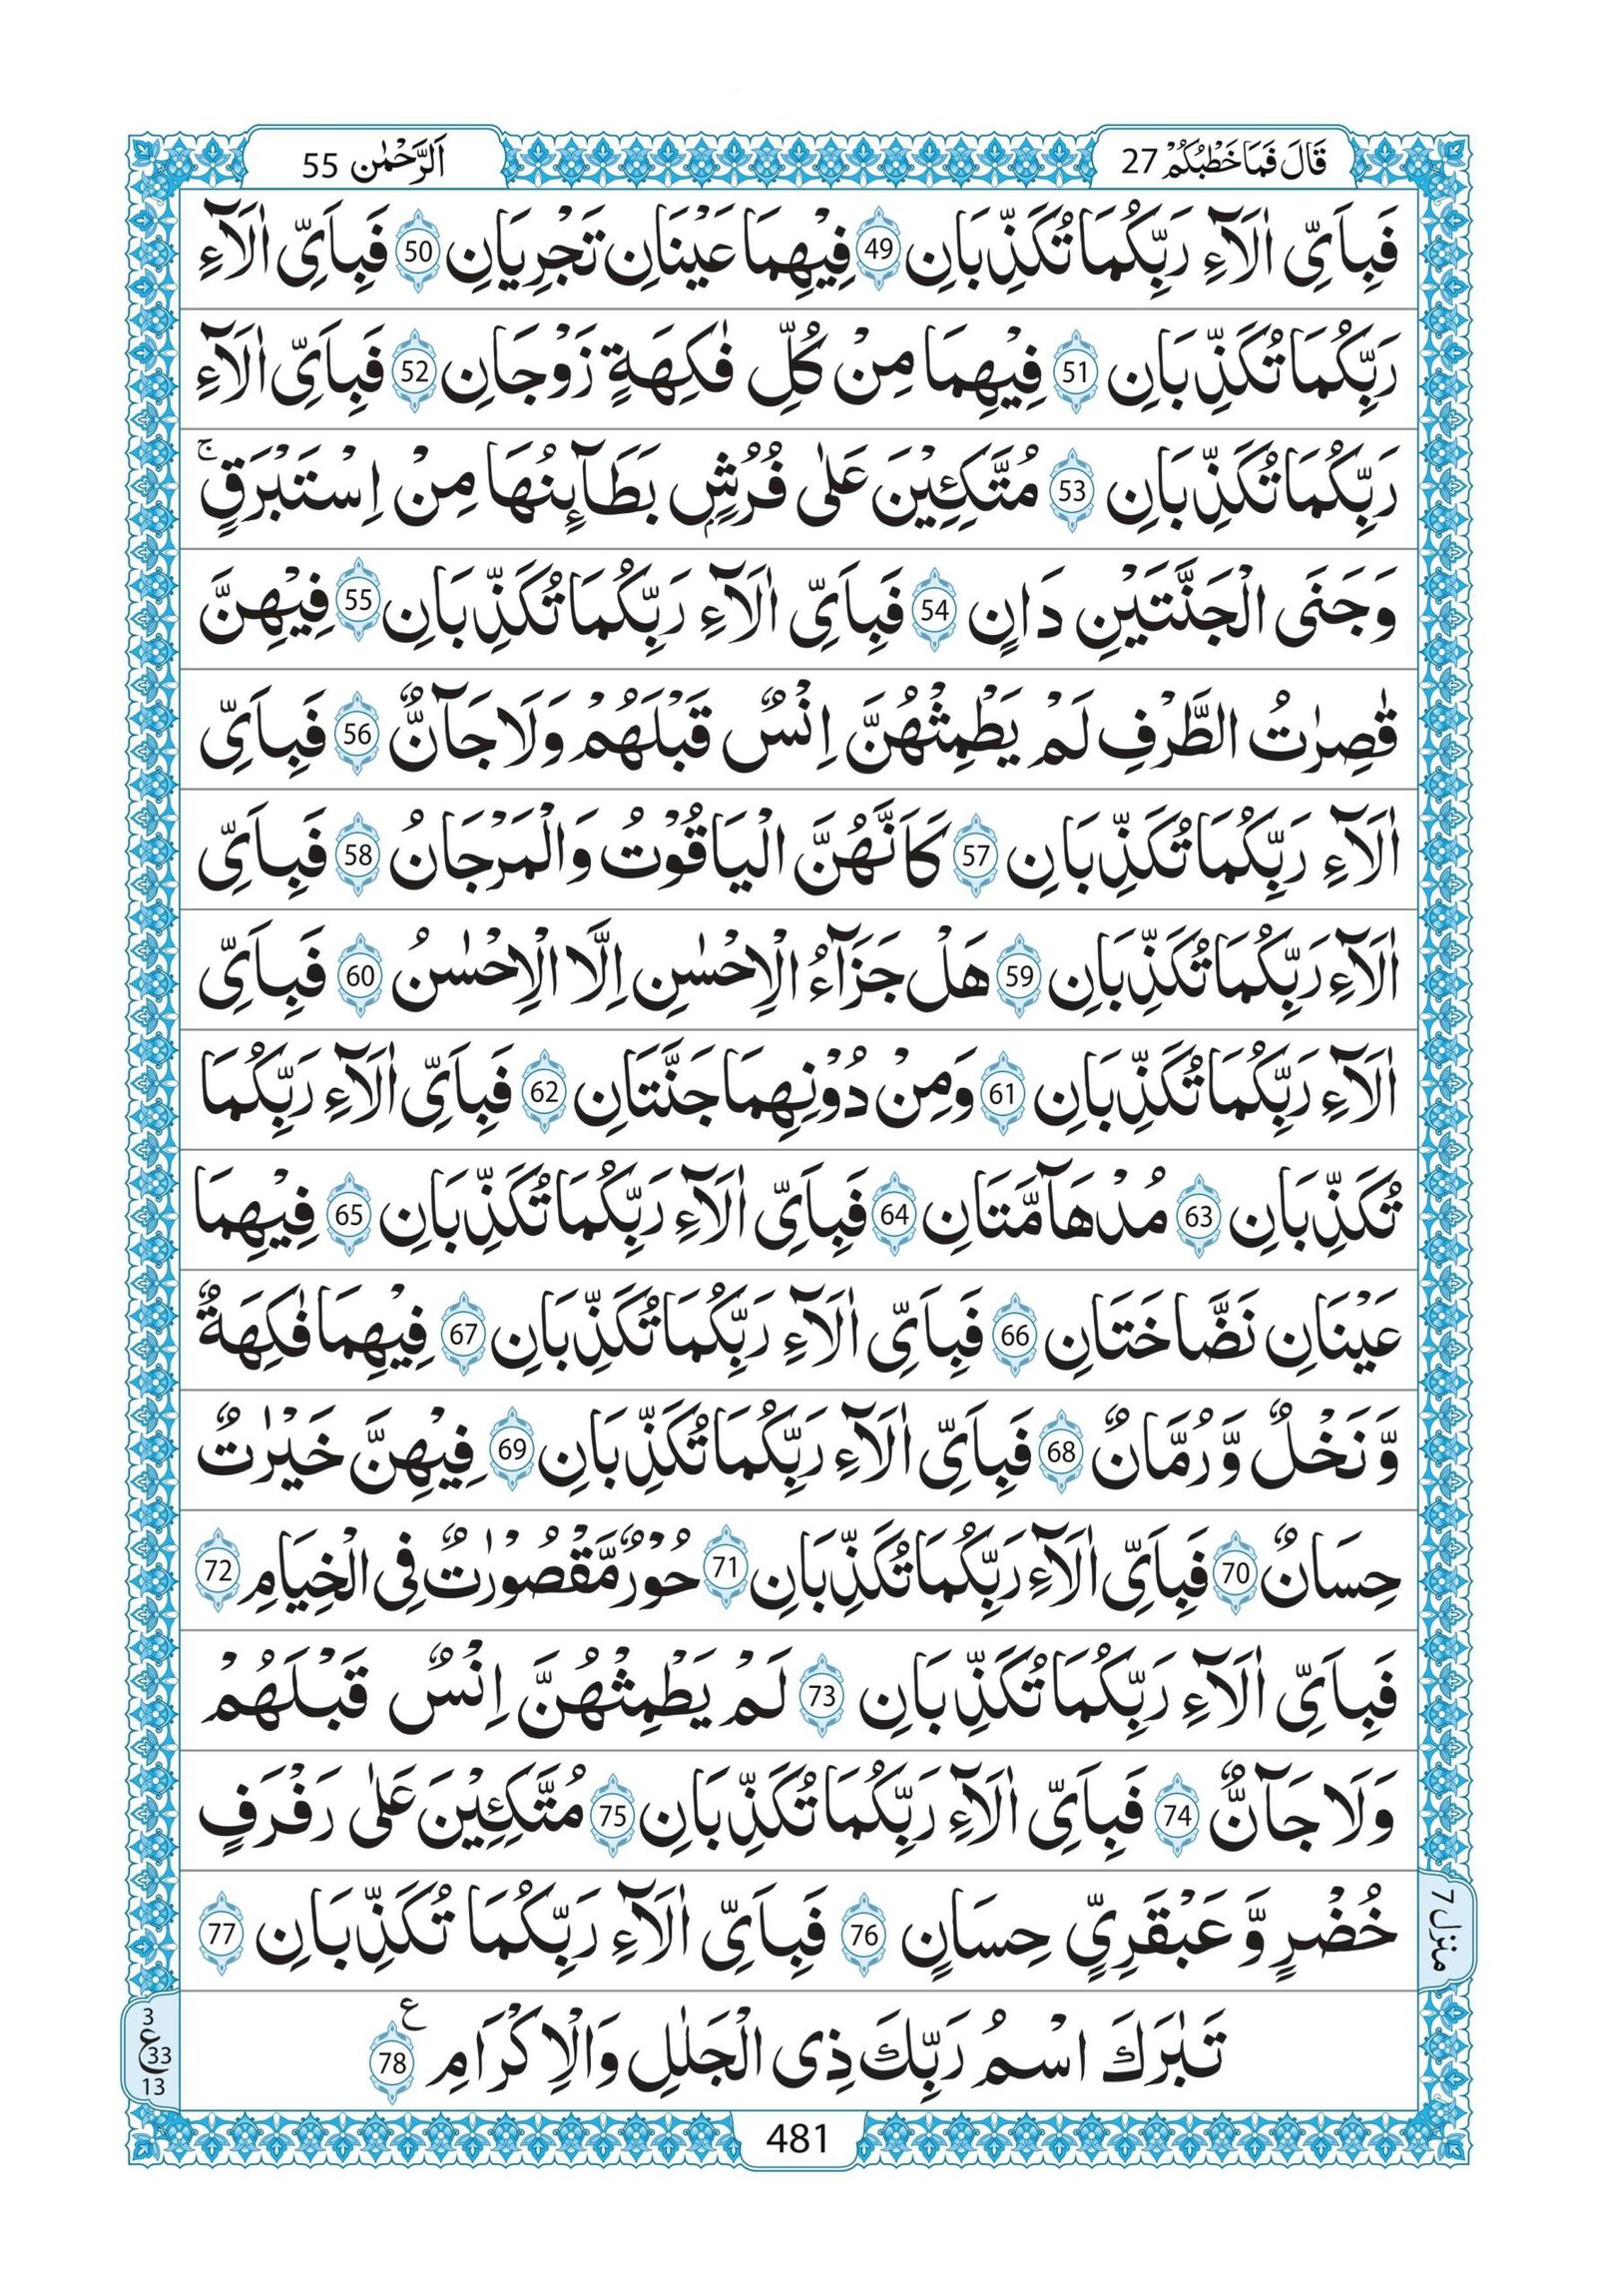 قَالَ فَمَا خَطْبُكُمْ 27
اَلرَّحْمٰن 55
فَبِاَيِّ اٰلَآءِ رَبِّكُمَا تُكَذِّبَانِ 49 فِيْهِمَا عَيْنَانِ تَجْرِيَانِ 50 فَبِاَيِّ اٰلَآءِ
رَبِّكُمَا تُكَذِّبَانِ 51 فِيْهِمَا مِنْ كُلِّ فٰكِهَةٍ زَوْجَانِ 52 فَبِاَيِّ اٰلَآءِ
رَبِّكُمَا تُكَذِّبَانِ 53 مُتَّكِـِٕيْنَ عَلٰى فُرُشٍۭ بَطَآىِٕنُهَا مِنْ اِسْتَبْرَقٍ ۚ
وَجَنَى الْجَنَّتَيْنِ دَانٍ 54 فَبِاَيِّ اٰلَآءِ رَبِّكُمَا تُكَذِّبَانِ 55 فِيْهِنَّ
قٰصِرٰتُ الطَّرْفِ لَمْ يَطْمِثْهُنَّ اِنْسٌ قَبْلَهُمْ وَلَا جَآنٌّ 56 فَبِاَيِّ
اٰلَآءِ رَبِّكُمَا تُكَذِّبَانِ 57 كَاَنَّهُنَّ الْيَاقُوْتُ وَالْمَرْجَانُ 58 فَبِاَيِّ
اٰلَآءِ رَبِّكُمَا تُكَذِّبَانِ 59 هَلْ جَزَآءُ الْاِحْسٰنِ اِلَّا الْاِحْسٰنُ 60 فَبِاَيِّ
اٰلَآءِ رَبِّكُمَا تُكَذِّبَانِ 61 وَمِنْ دُوْنِهِمَا جَنَّتَانِ 62 فَبِاَيِّ اٰلَآءِ رَبِّكُمَا
تُكَذِّبَانِ 63 مُدْهَآمَّتَانِ 64 فَبِاَيِّ اٰلَآءِ رَبِّكُمَا تُكَذِّبَانِ 65 فِيْهِمَا
عَيْنَانِ نَضَّاخَتَانِ 66 فَبِاَيِّ اٰلَآءِ رَبِّكُمَا تُكَذِّبَانِ 67 فِيْهِمَا فٰكِهَةٌ
وَّنَخْلٌ وَّرُمَّانٌ 68 فَبِاَيِّ اٰلَآءِ رَبِّكُمَا تُكَذِّبَانِ 69 فِيْهِنَّ خَيْرٰتٌ
حِسَانٌ 70 فَبِاَيِّ اٰلَآءِ رَبِّكُمَا تُكَذِّبَانِ 71 حُوْرٌ مَّقْصُوْرٰتٌ فِى الْخِيَامِ 72
فَبِاَيِّ اٰلَآءِ رَبِّكُمَا تُكَذِّبَانِ 73 لَمْ يَطْمِثْهُنَّ اِنْسٌ قَبْلَهُمْ
وَلَا جَآنٌّ 74 فَبِاَيِّ اٰلَآءِ رَبِّكُمَا تُكَذِّبَانِ 75 مُتَّكِـِٕيْنَ عَلٰى رَفْرَفٍ
خُضْرٍ وَّعَبْقَرِيٍّ حِسَانٍ 76 فَبِاَيِّ اٰلَآءِ رَبِّكُمَا تُكَذِّبَانِ 77
منزل 7
تَبٰرَكَ اسْمُ رَبِّكَ ذِى الْجَلٰلِ وَالْاِكْرَامِ ع 78
3
ع 33
13
481